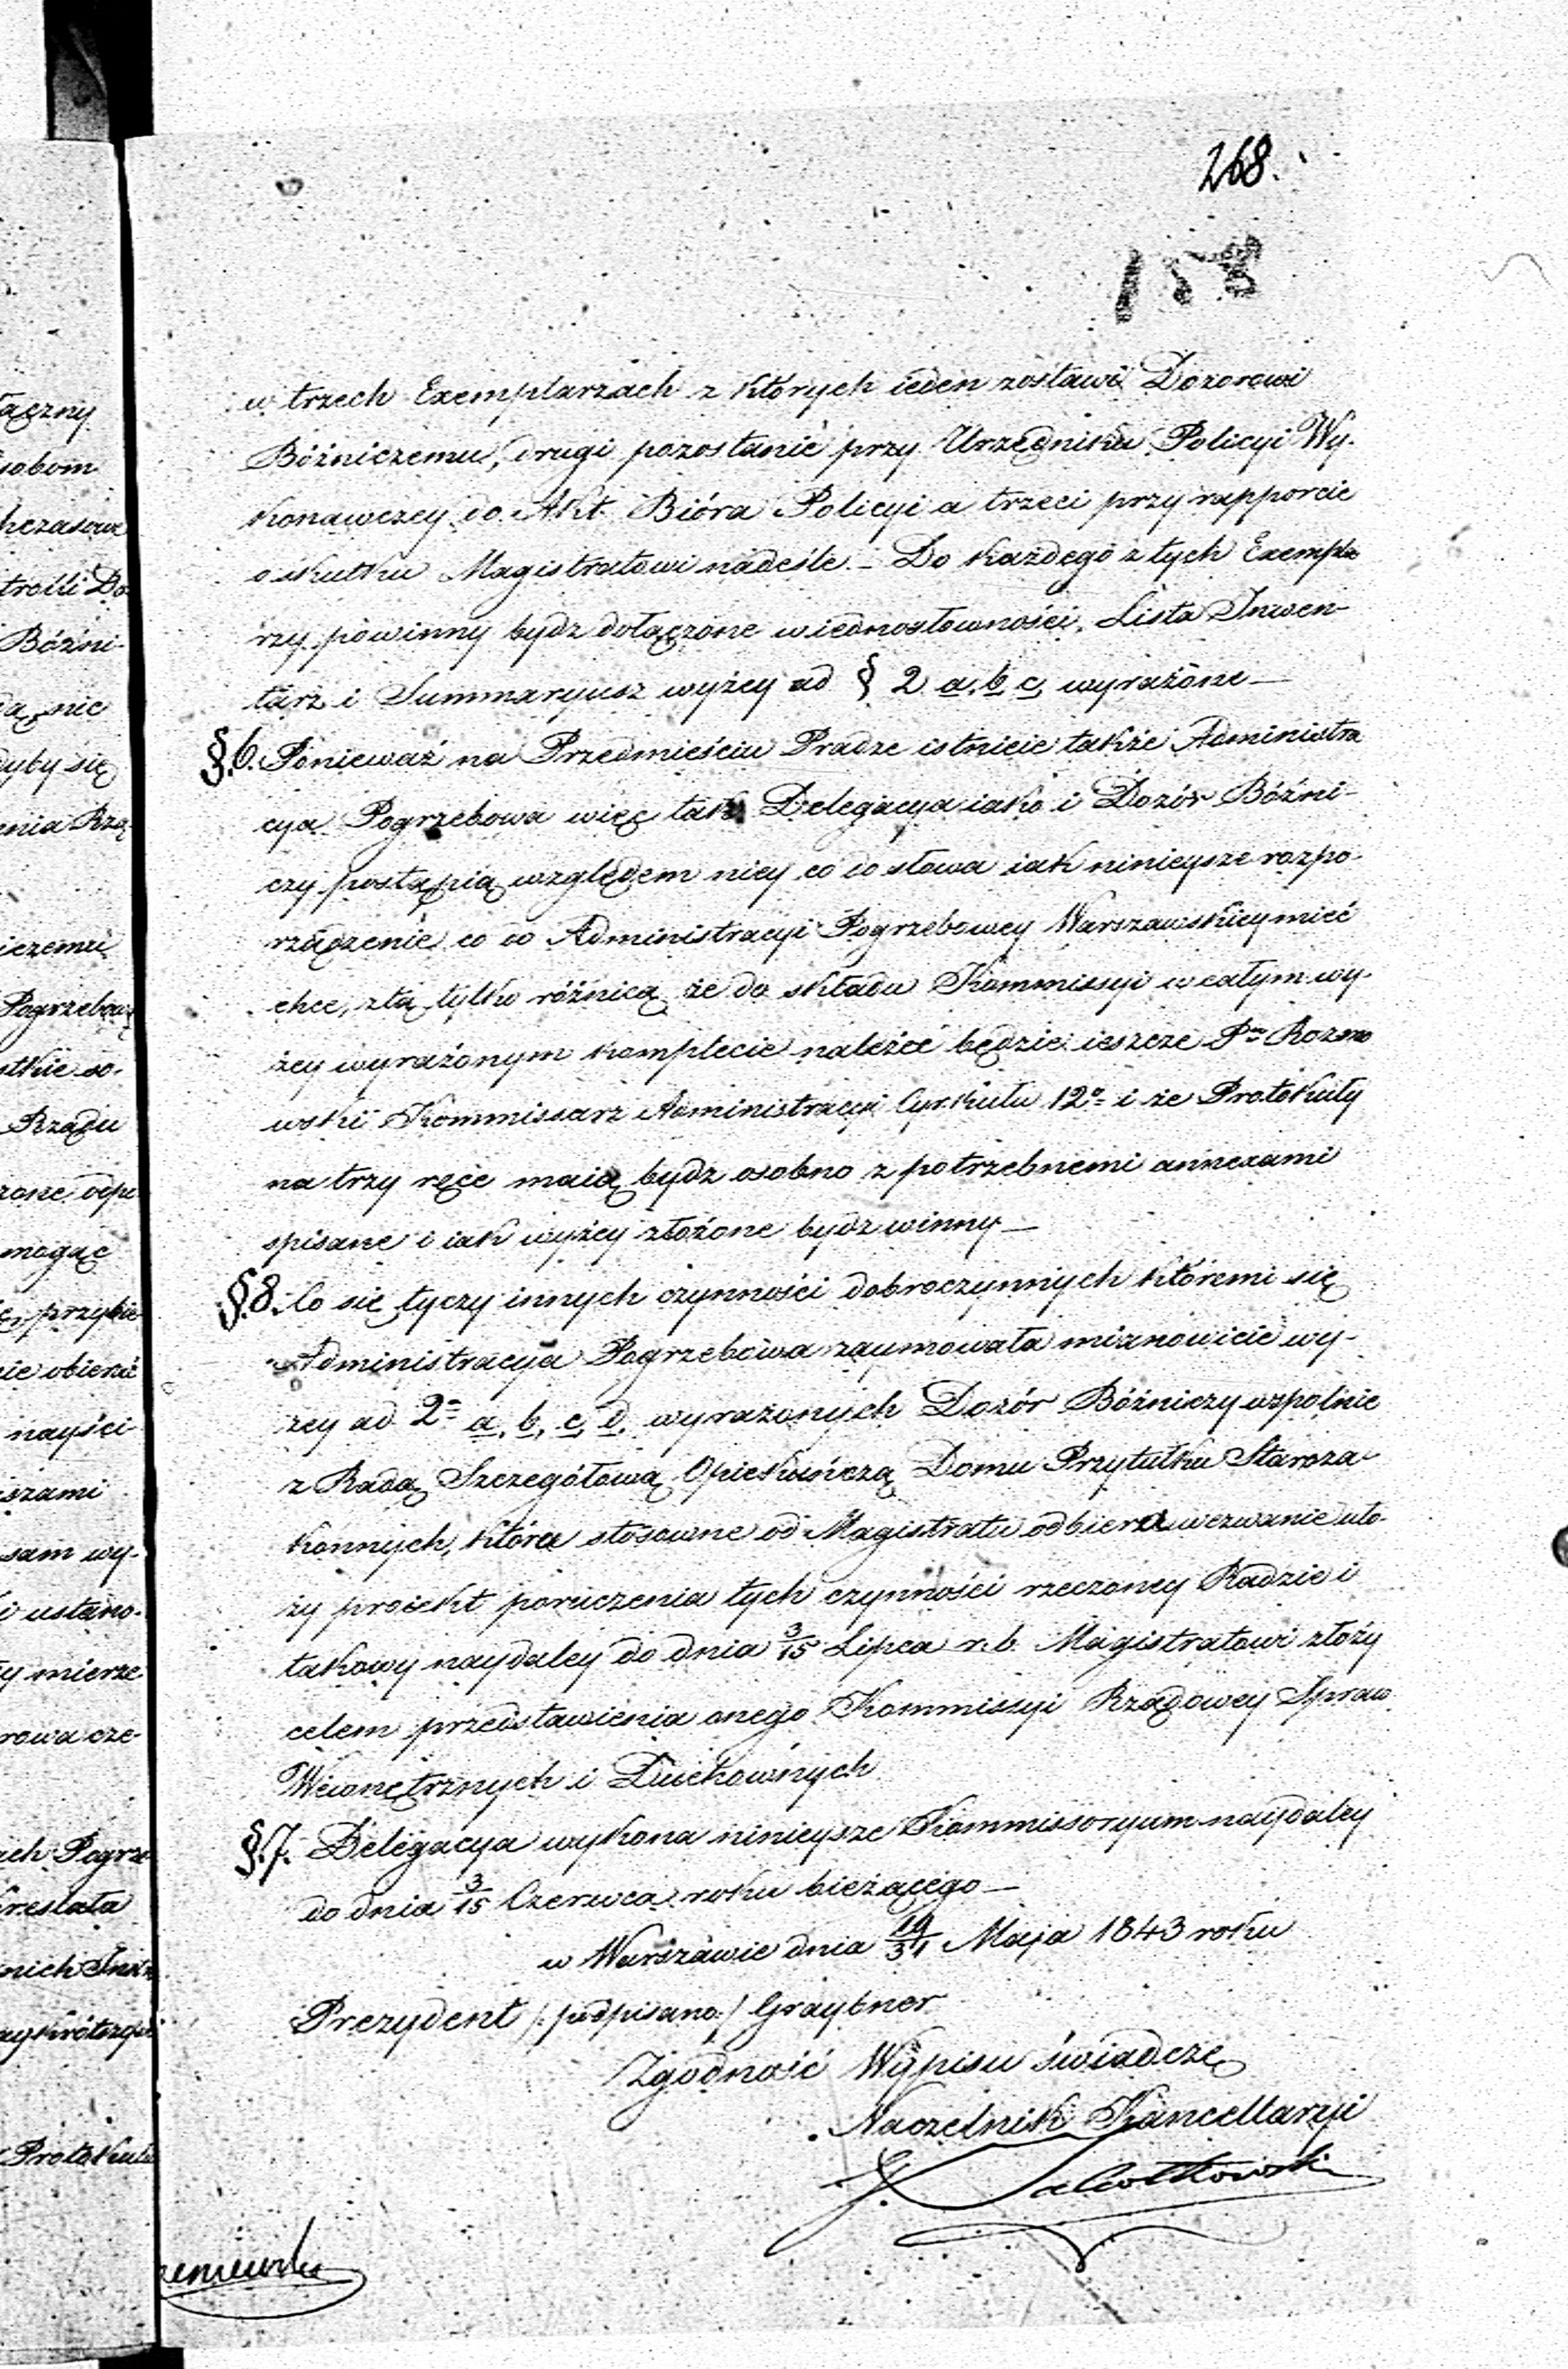 268.
158
w trzech Exemplarzach z których ieden zostawi Dozorowi
Bóżniczemu, drugi pozostanie przy Urzędniku Policyi Wy-
konawczey do Akt Bióra Policyi a trzeci przy rapporcie
o skutku Magistratowi nadeśle. – Do każdego z tych Exempla
rzy powinny bydz dołączone w iednosłowności, Lista Inwen-
tarz i Summaryusz wyżey ad § 2 a, b, c, wyrażone —
§.6. Ponieważ na Przedmieściu Pradze istnieie także Administra
cya Pogrzebowa więc tak Delegacya iako i Dozór Bóżni-
czy postąpią względem niey co do słowa iak ninieysze rozpo-
rządzenie co do Administracyi Pogrzebowey Warszawskiey mieć
chce, z tą tylko różnicą że do składu Kommissyi w całym wy-
żey wyrażonym komplecie należeć będzie ieszcze Pan
wski Kommissarz Administracyi Cyrkułu 12o i że Protokuły
na trzy ręce maią bydz osobno z potrzebnemi annexami
spisane i iak wyżey złożone bydz winny —
§.8. Co się tyczy innych czynności dobroczynnych któremi się
Administracya Pogrzebowa zaymowała mianowicie wy-
żey ad 2o a, b, c, d, wyrażonych Dozór Bóżniczy wspolnie
z Radą Szczegółową Opiekuńczą Domu Przytułku Staroza-
konnych, która stosowne od Magistratu odbiera wezwanie uło-
ży proiekt poruczenia tych czynności rzeczoney Radzie i
takowy naydaley do dnia 3/15 Lipca r. b. Magistratowi złoży
celem przedstawienia onego Kommissyi Rządowey Spraw
Wewnętrznych i Duchownych
§.7. Delegacya wykona ninieysze Kommissoryum naydaley
do dnia 3/15 Czerwca roku bieżącego —
w Warszawie dnia 19/31 Maja 1843 roku
Prezydent /:podpisano:/ Graybner
Zgodność Wypisu świadczę
Naczelnik Kancellaryi